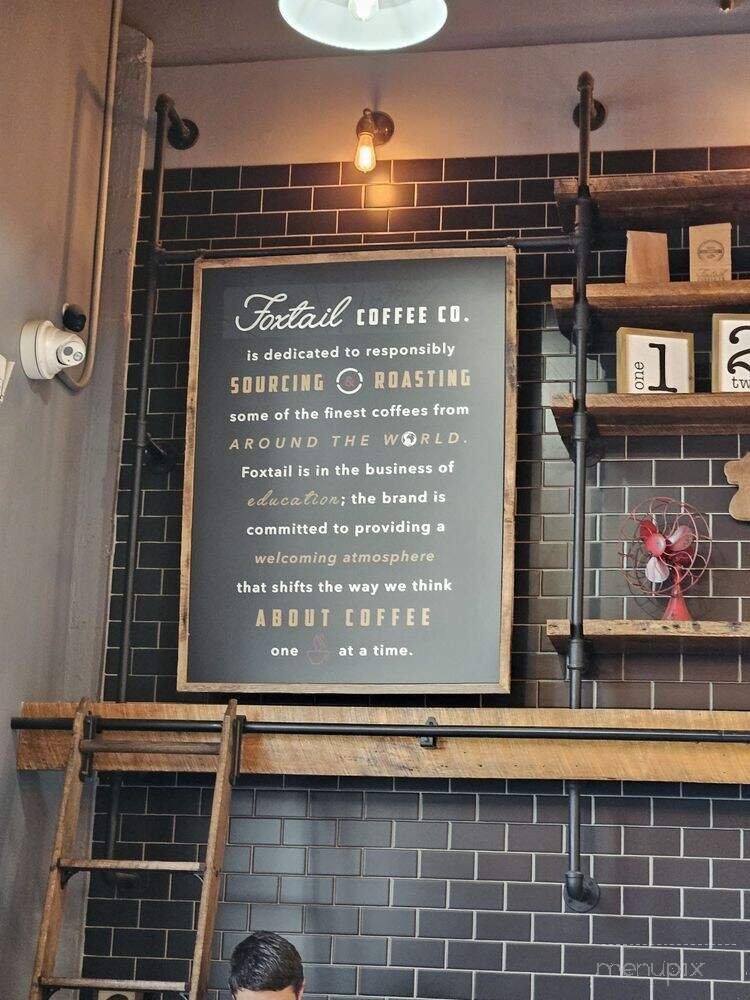 Foxtail COFFEE CO.
is dedicated to responsibly
SOURCING & ROASTING
some of the finest coffees from
AROUND THE WORLD.
Foxtail is in the business of
education; the brand is
committed to providing a
welcoming atmosphere
that shifts the way we think
ABOUT COFFEE
one at a time.
one 1
2
menupix